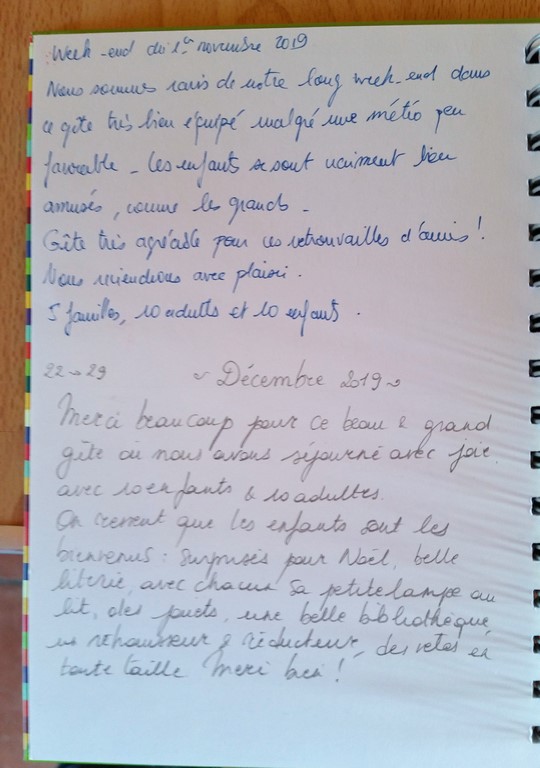 Week-end du 1er novembre 2019
Nous sommes ravis de notre long week-end dans
ce gîte très bien équipé malgré une météo peu
favorable - Les enfants se sont vraiment bien
amusés, comme les grands -
Gîte très agréable pour ces retrouvailles d'amis !
Nous reviendrons avec plaisir.
5 familles, 10 adultes et 10 enfants.
22 → 29 ~ Décembre 2019 ~
Merci beaucoup pour ce beau & grand
gîte où nous avons séjourné avec joie
avec 10 enfants & 10 adultes.
On ressent que les enfants sont les
bienvenus : surprises pour Noël, belle
literie, avec chacun sa petite lampe au
lit, des jouets, une belle bibliothèque,
un rehausseur & réducteur, des vélos en
toute taille Merci bien !